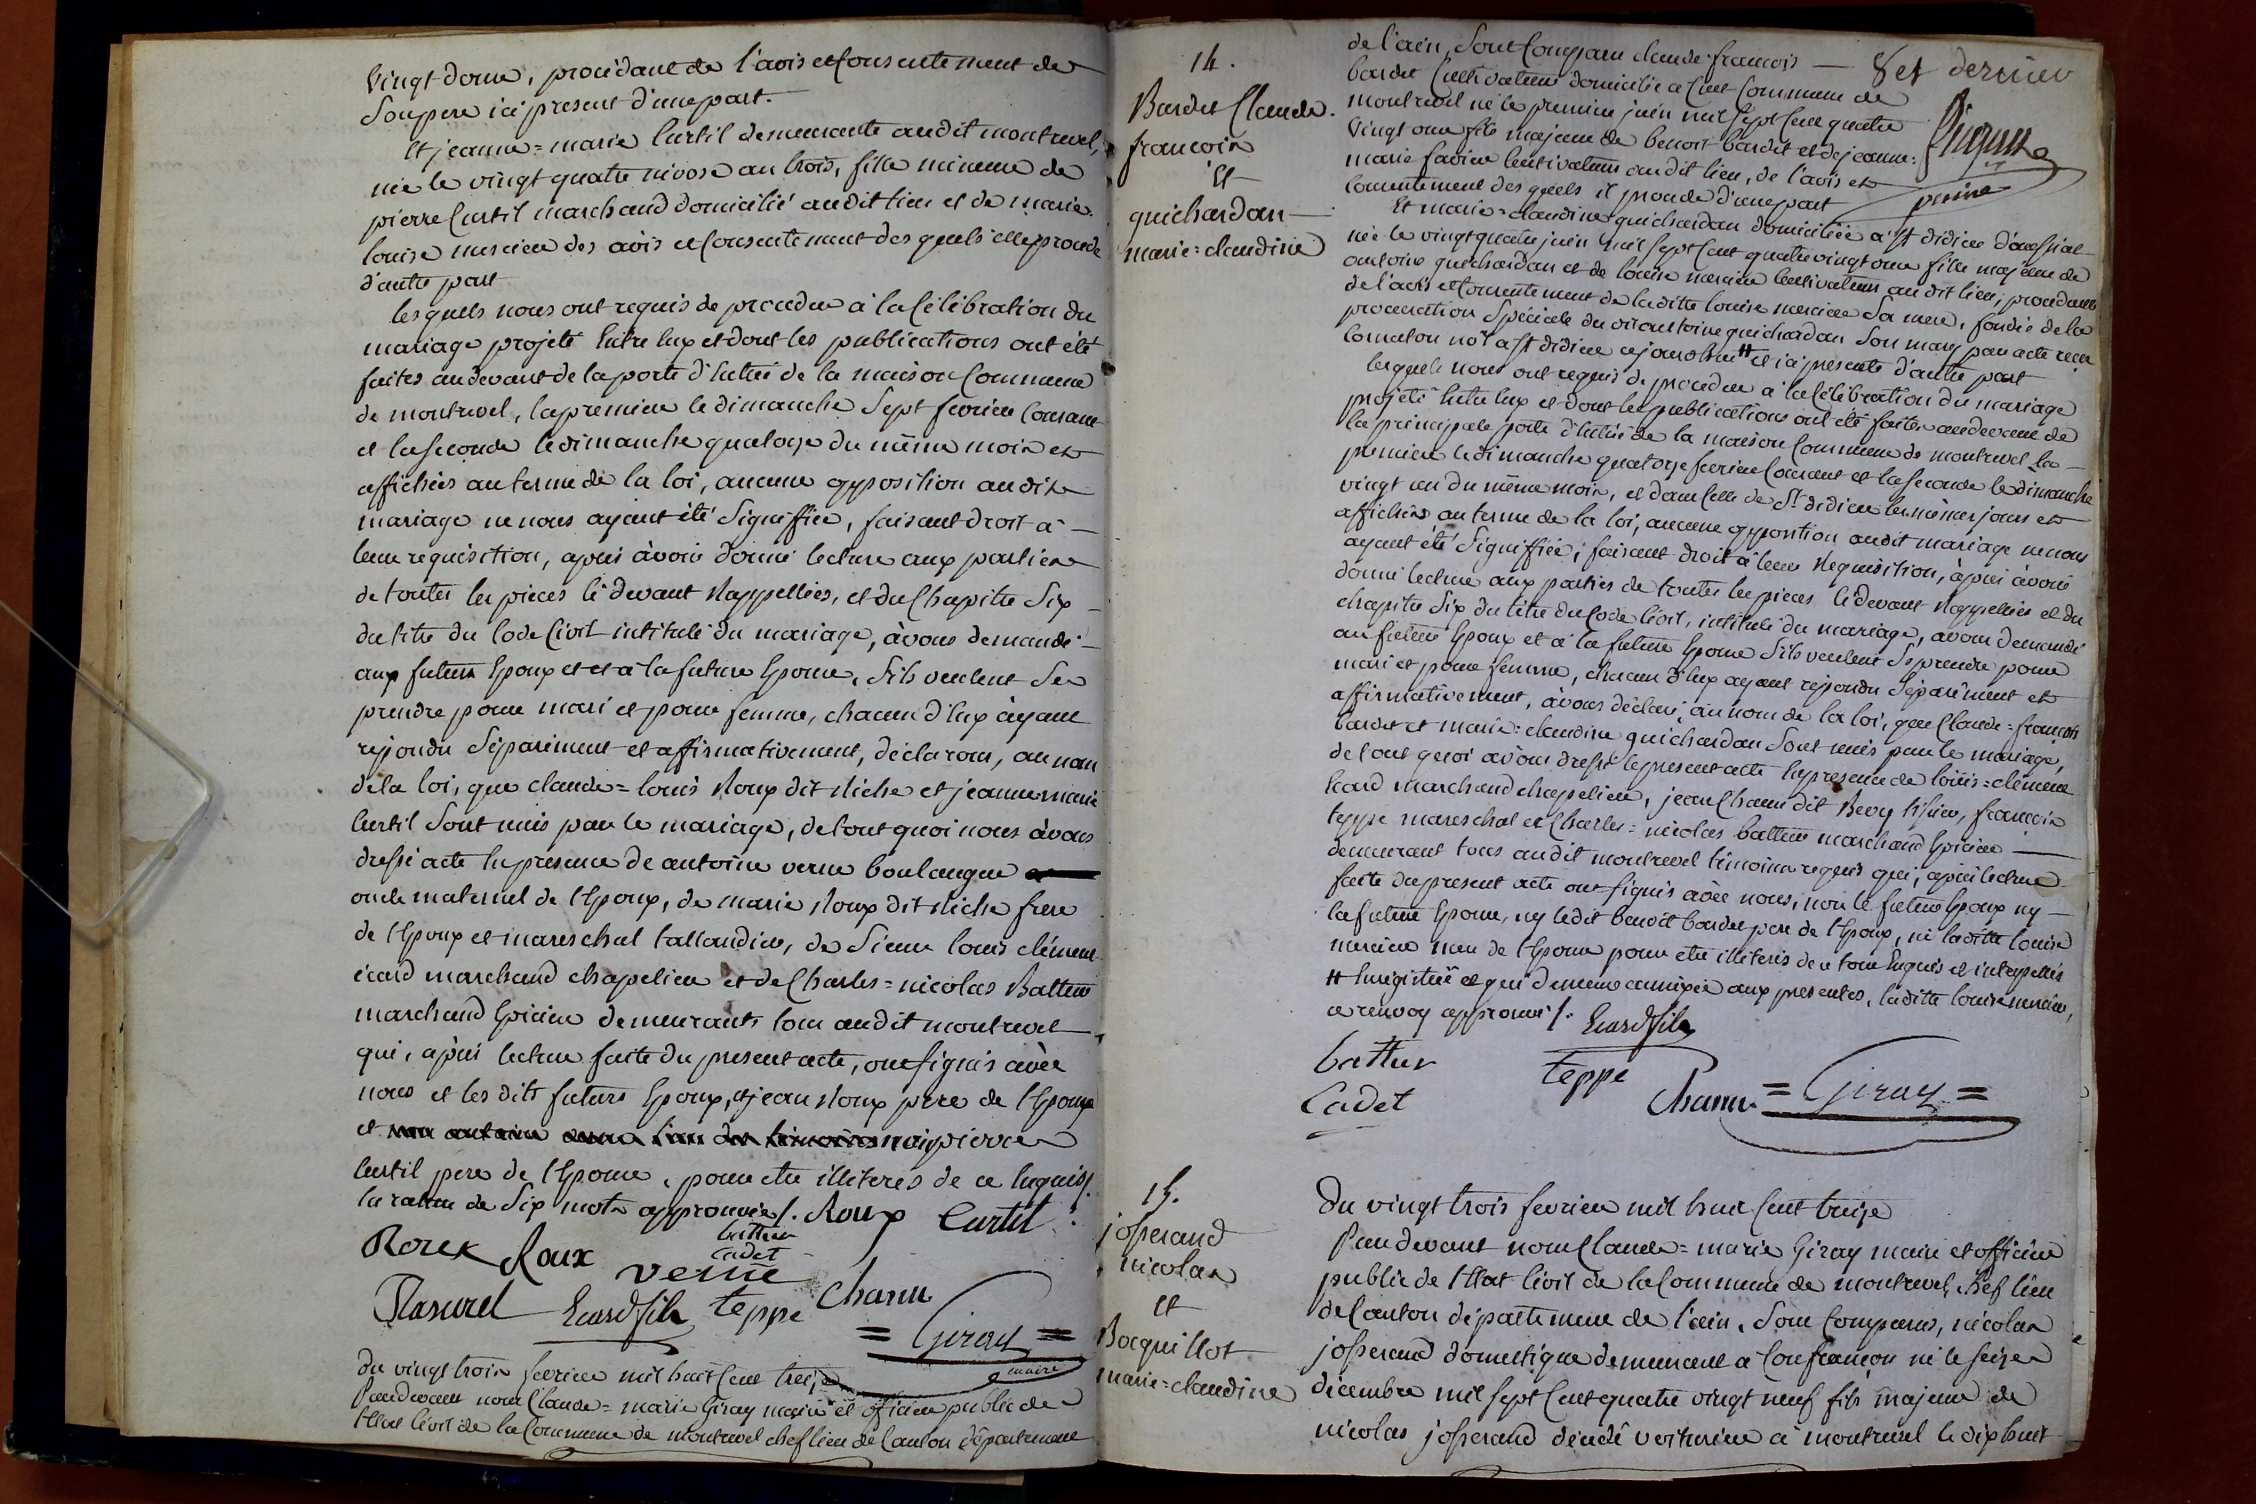 vingt douze, procédant de l'avis et consentement de
son pere ici present d'une part.
Et jeanne=marie Curtil demeurante audit montrevel,
née le vingt quatre nivose an trois, fille mineure de
pierre Curtil marchand domicilié audit lieu et de marie
louise mercier des avis et consentement des quels elle procede
d'autre part
les quels nous ont requis de proceder à la Célébration du
mariage projeté Entre Eux et dont les publications ont été
faites au devant de la porte d'Entrée de la maison Commune
de montrevel, la premiere le dimanche Sept fevrier Courant
et la seconde le dimanche quatorze du même mois et
affichées au terme de la loi, aucune opposition audit
mariage ne nous ayant été Signiffiée, faisant droit à
leur requisition, après avoir donné lecture aux parties
de toutes les pieces Ci devant Rappellées, et du Chapitre Six
du titre du Code Civil intitulé du mariage, avons demandé
aux futurs Epoux et et à la future Epouse, S'ils veulent Se
prendre pour mari et pour femme, chacun d'Eux ayant
repondu Séparément et affirmativement, déclarons, au nom
de la loi, que claude=louis Roux dit Riche et jeanne marie
Curtil Sont unis par le mariage, de tout quoi nous avons
dressé acte En presence de antoine verne boulanger
oncle maternel de l'Epoux, de marie Roux dit Riche frere
de l'Epoux et mareschal tallandier, de Sieur louis clément
Ecard marchand chapelier et de Charles=nicolas Battur
marchand Epicier demeurants tous audit montrevel
qui, après lecture faite du present acte, ont signés avec
nous et les dits futurs Epoux, et jean Roux pere de l'Epoux
et non pierre
Curtil pere de l'Epouse, pour etre illiterés de ce Enquis/.
la rature de Six mots approuvée/. Roux Curtil
Roux Roux battur cadet
verne
Ecard fils teppe Charu
=Giray=
maire
Du vingt trois fevrier mil huit Cent treize
Pardevant nous Claude=marie Giray maire et officier public de
l'Etat Civil de la Commune de montrevel chef lieu de Canton département
14.
Bardet Claude
francois
Et
guichardan
marie=claudine
8 et dernier
de l'ain, Sont Comparu claude francois
bardet Cultivateur domicilié a Cuet Commune de
montrevel né le premier juin mil Sept Cent quatre
vingt onze fils majeur de benoit bardet et de jeanne=
marie favier Cultivateurs audit lieu, de l'avis et
consentement des quels il procede d'une part
Et marie=claudine guichardan domiciliée à St didier d'aussiat
née le vingt quatre juin mil Sept Cent quatre vingt onze fille majeure de
antoine guichardan et de louise mercier Cultivateurs au dit lieu, procedante
de l'avis et Consentement de la ditte louise mercier Sa mere, fondée de la
procuration Spéciale du dit antoine guichardan Son mary par acte reçu
Comaton no.re a St didier ce jourd'hui # et ici présente d'autre part
lesquels nous ont requis de proceder à la Célébration du mariage
projeté Entre Eux et dont les publications ont été faites au devant de
la principale porte d'Entrée de la maison Commune de montrevel la
premiere le dimanche quatorze fevrier Courant et la seconde le dimanche
vingt un du même mois, et dans celle de St didier les mêmes jours et
affichées au terme de la loi, aucune opposition audit mariage ne nous
ayant été Signiffiée; faisant droit à leur Requisition, après avoir
donné lecture aux parties de toutes les pieces Ci devant Rappellées et du
chapitre Six du titre du Code Civil, intitulé du mariage, avons demandé
au futur Epoux et à la future Epouse S'ils veulent Se prendre pour
mari et pour femme, chacun d'Eux ayant repondu Séparément et
affirmativement, avons déclaré, au nom de la loi, que Claude=francois
bardet et marie=claudine guichardan Sont unis par le mariage,
de tout quoi avons dressé le present acte En presence de louis=clément
Ecard marchand chapelier, jean Charu dit Bevy tisseur, francois
teppe mareschal et Charles=nicolas battur marchand Epicier
demeurant tous audit montrevel témoins requis qui, après lecture
faite du present acte ont signés avec nous, non le futur Epoux ny
la future Epouse, ny le dit benoit bardet pere de l'Epoux, ni la ditte louise
mercier mere de l'Epouse pour etre illiterés de ce tous Enquis et interpellés
# Enregistrée et qui demeure annéxée aux presentes, la ditte louise mercier,
ce renvoy approuvé/. Ecard fils
battur
Cadet
teppe
Charu =Giray=
15.
josserand
nicolas
et
Bocquillot
marie=claudine
Du vingt trois fevrier mil huit Cent treize
Pardevant nous Claude=marie Giray maire et officier
public de l'Etat Civil de la Commune de montrevel, chef lieu
de Canton département de l'ain. Sont Comparus, nicolas
josserand domestique demeurant a Confrançon né le seize
décembre mil sept Cent quatre vingt neuf fils majeur de
nicolas josserand décedé voiturier à montrevel le dix huit